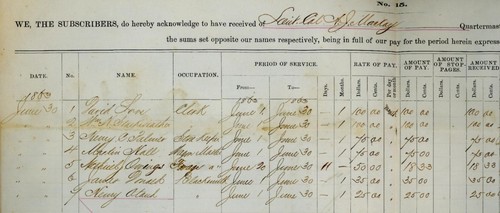 No. 15.
WE, THE SUBSCRIBERS, do hereby acknowledge to have received of Lieut. Col. Quartermas
the sums set opposite our names respectively, being in full of our pay for the period herein express
DATE. No. NAME. OCCUPATION. PERIOD OF SERVICE. RATE OF PAY. AMOUNT OF PAY. AMOUNT OF STOP-PAGES. AMOUNT RECEIVED
From— To— Days. Months. Dollars. Cents. Per day or month. Dollars. Cents. Dollars. Cents. Dollars. Cents.
1863 1863 1863
June 30 1 David Clerk June 1 June 30 1 100 00 100 00 100 00
2 June 1 June 30 1 100 00 100 00 100 00
3 Henry C. June 1 June 30 1 75 00 75 00 75 00
4 Martin Hall Wagon Master June 1 June 30 1 75 00 75 00 75 00
5 June 20 June 30 11 50 00 18 33 18 33
6 James Blacksmith June 1 June 30 1 35 00 35 00 35 00
9 Henry Clark June 1 June 30 1 25 00 25 00 25 00